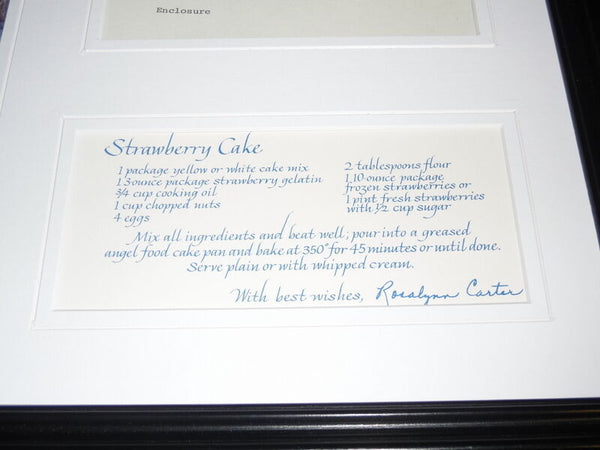 Enclosure
Strawberry Cake
1 package yellow or white cake mix
1 3 ounce package strawberry gelatin
3/4 cup cooking oil
1 cup chopped nuts
4 eggs
2 tablespoons flour
1 10 ounce package
frozen strawberries or
1 pint fresh strawberries
with 1/2 cup sugar
Mix all ingredients and beat well; pour into a greased
angel food cake pan and bake at 350° for 45 minutes or until done.
Serve plain or with whipped cream.
With best wishes, Rosalynn Carter